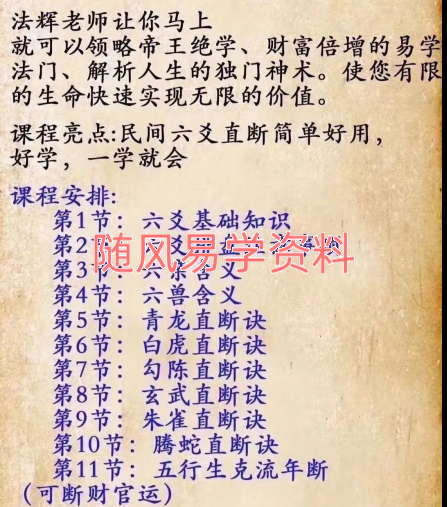 法辉老师让你马上
就可以领略帝王绝学、财富倍增的易学
法门、解析人生的独门神术。使您有限
的生命快速实现无限的价值。
课程亮点:民间六爻直断简单好用，
好学，一学就会
课程安排:
第1节：六爻基础知识
第2节：
随风易学资料
第3节：含义
第4节：六兽含义
第5节：青龙直断诀
第6节：白虎直断诀
第7节：勾陈直断诀
第8节：玄武直断诀
第9节：朱雀直断诀
第10节：腾蛇直断诀
第11节：五行生克流年断
（可断财官运）